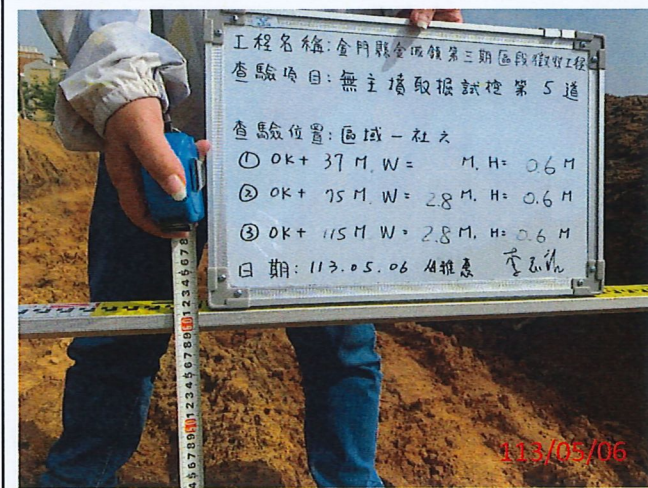 工程名稱:金門縣金城鎮第三期區段徵收工程
查驗項目:無主墳取掘試挖 第 5 道
查驗位置:區域一社六
① 0K+ 37 M. W= M. H= 0.6 M
② 0K+ 75 M. W= 2.8 M. H= 0.6 M
③ 0K+ 115 M. W= 2.8 M. H= 0.6 M
日期:113.05.06
113/05/06